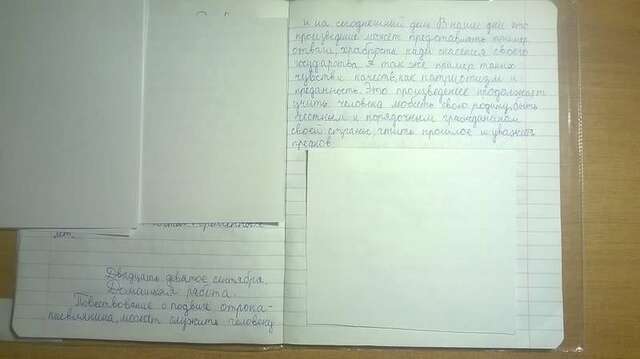 лет.
Двадцать девятое сентября.
Домашняя работа.
Повествование о подвиге отрока-
киевлянина, может служить человеку
и на сегодняшний день. В наше дни это
произведение может представлять пример
отваги, храбрости ради спасения своего
государства. А так же пример таких
чувств и качеств, как патриотизм и
преданность. Это произведение продолжает
учить человека любить свою родину, быть
честным и порядочным гражданином
своей страны, чтить прошлое и уважать
предков.